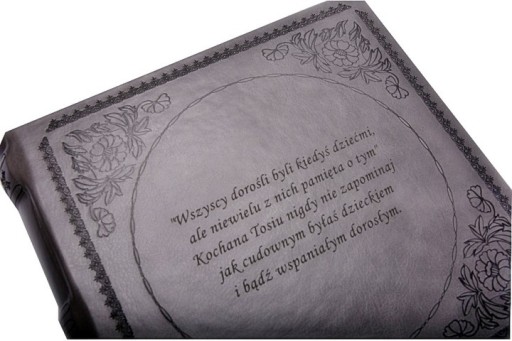 "Wszyscy dorośli byli kiedyś dziećmi,
ale niewielu z nich pamięta o tym"
Kochana Tosiu nigdy nie zapominaj
jak cudownym byłaś dzieckiem
i bądź wspaniałym dorosłym.